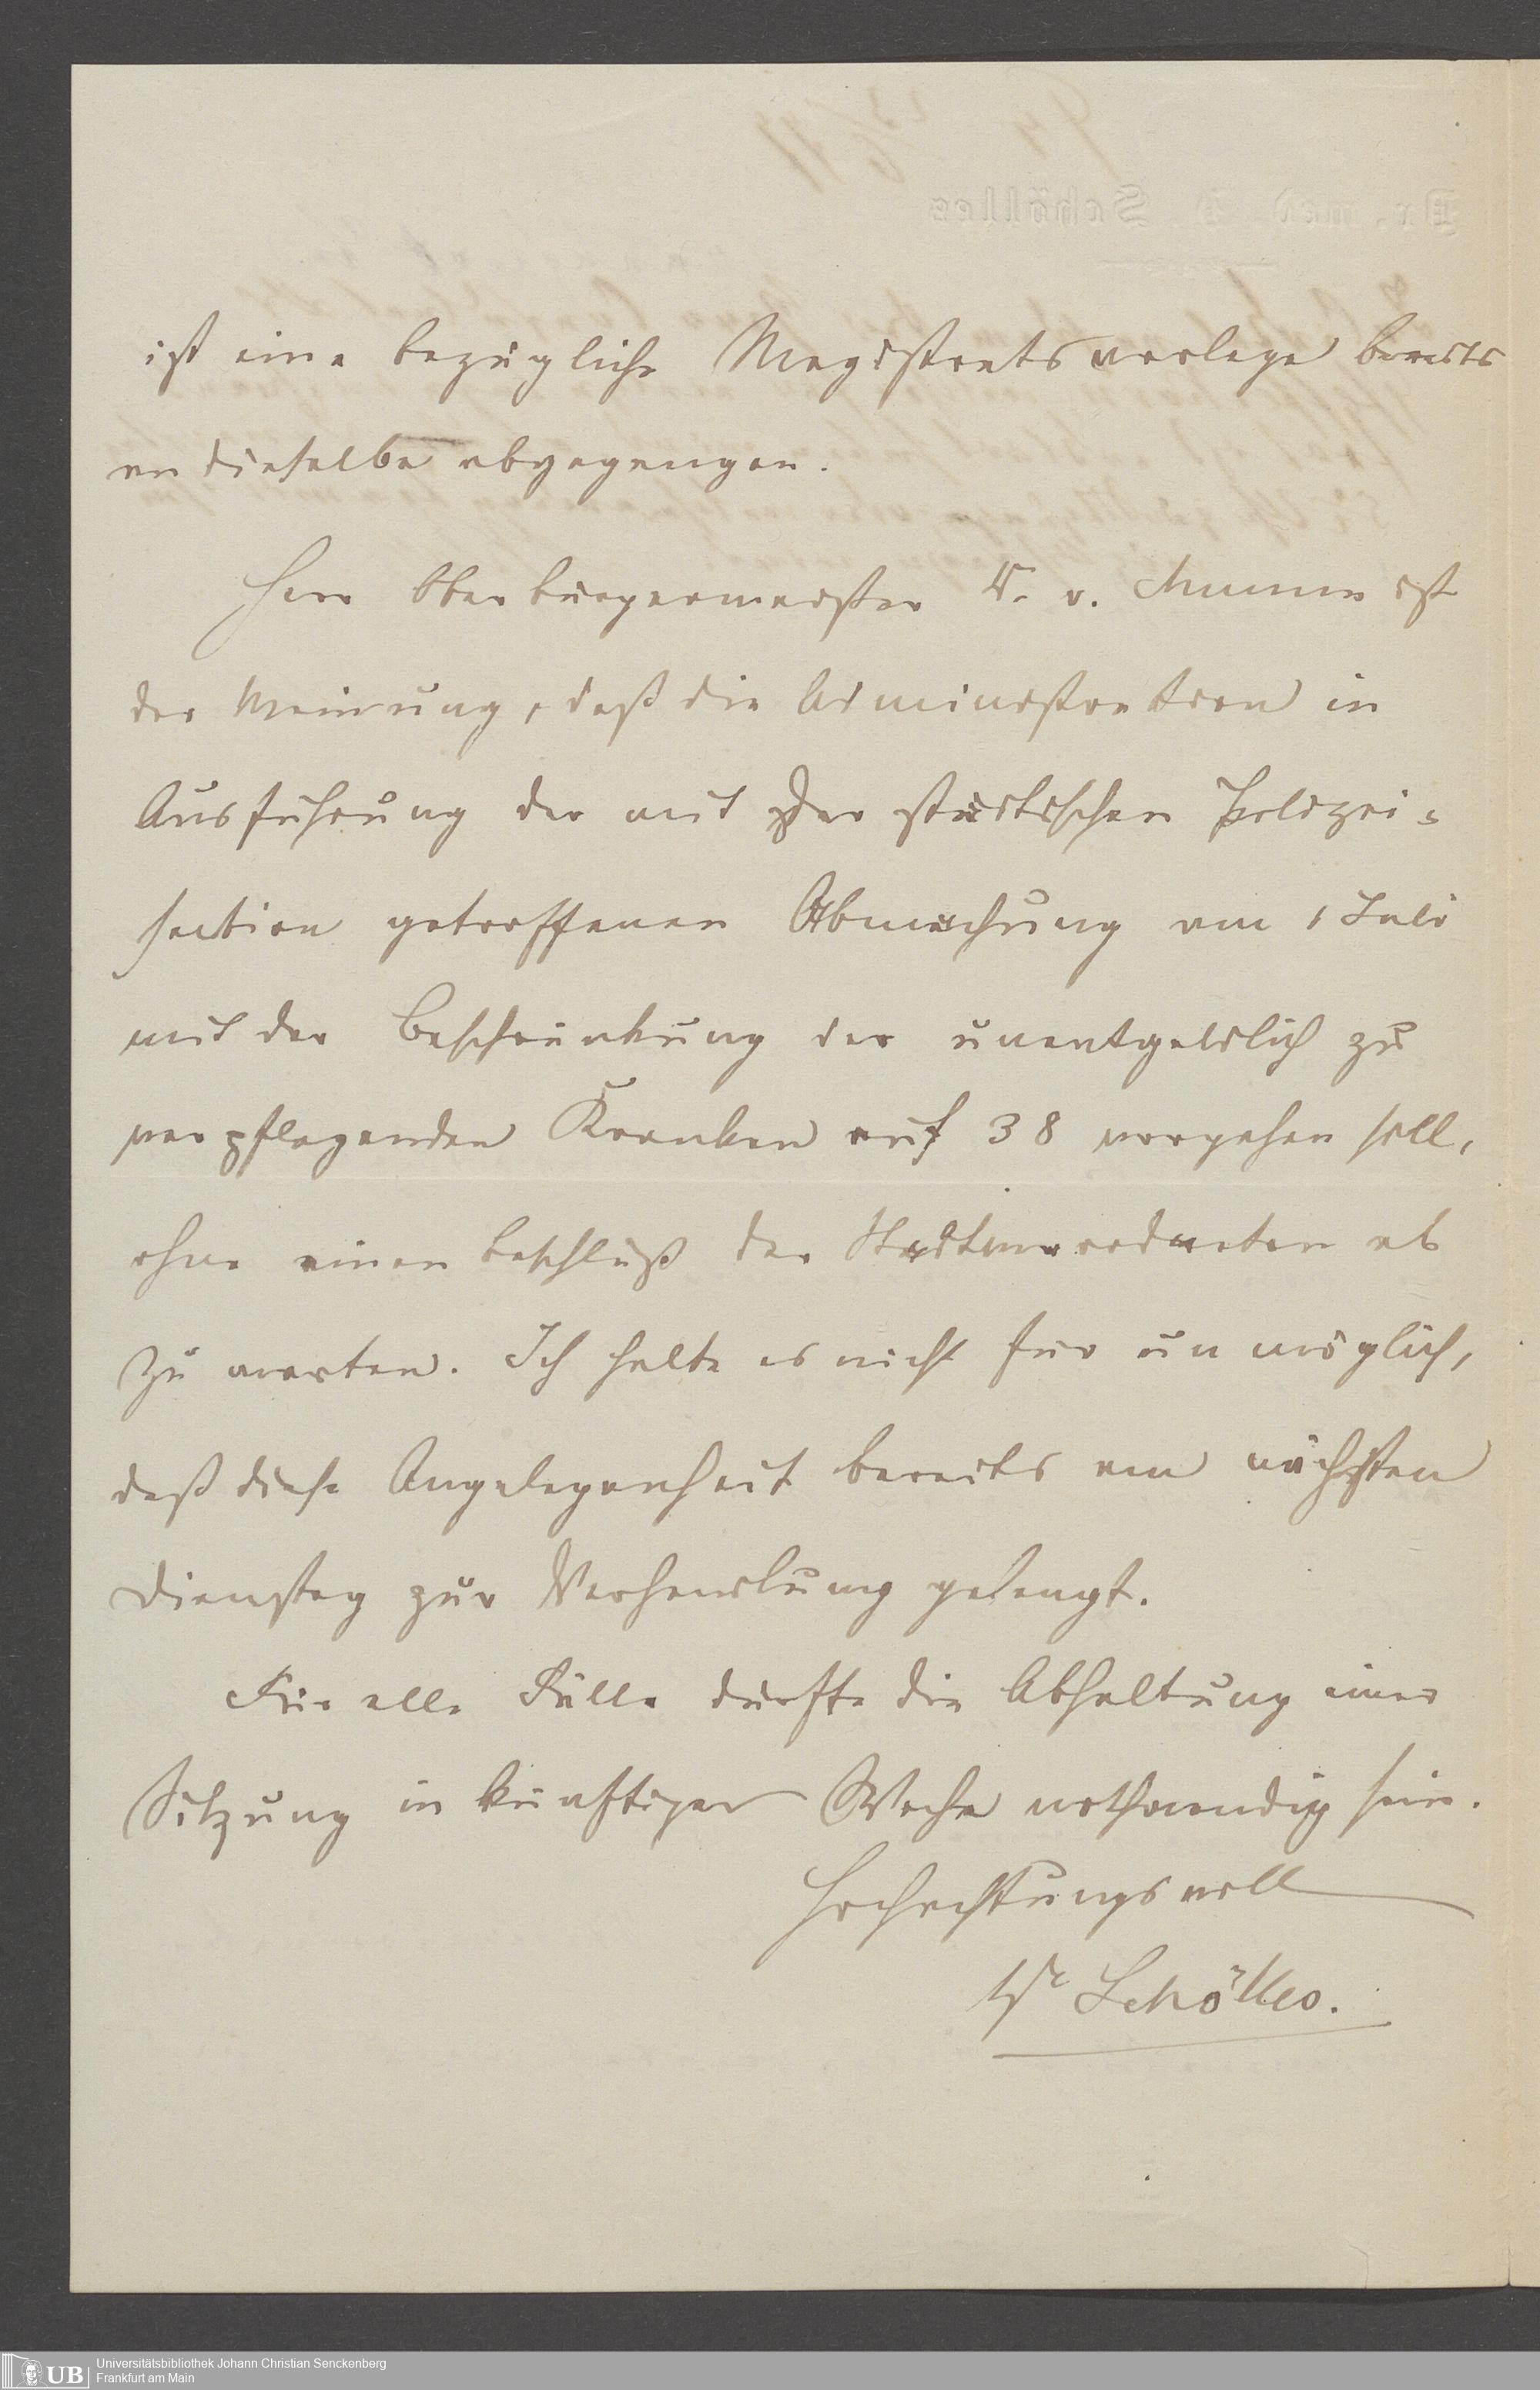 ist eine bezügliche Magistratsvorlage bereits
an dieselbe abgegangen.
Herr Oberbürgermeister Dr. v. Mumm ist
der Meinung, daß die Administration in
Ausführung der mit der städtischen Polizei-
section getroffenen Abmachung am 1 Juli
mit der Beschränkung der unentgeldlich zu
verpflegenden Kranken auf 38 vorgehen soll,
ohne einen Beschluß der Stadtverordneten ab
zu warten. Ich halte es nicht für unmöglich,
daß diese Angelegenheit bereits am nächsten
Dienstag zur Verhandlung gelangt.
Für alle Fälle dürfte die Abhaltung einer
Sitzung in künftiger Woche nothwendig sein.
Hochachtungsvoll
Dr Schölles.
UB
Universitätsbibliothek Johann Christian Senckenberg
Frankfurt am Main